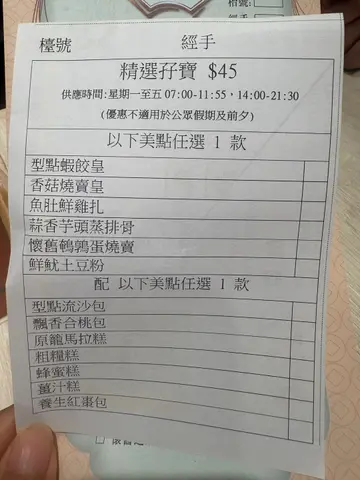 檯號 經手
精選孖寶 $45
供應時間:星期一至五 07:00-11:55,14:00-21:30
(優惠不適用於公眾假期及前夕)
以下美點任選 1 款
型點蝦餃皇
香菇燒賣皇
魚肚鮮雞扎
蒜香芋頭蒸排骨
懷舊鵪鶉蛋燒賣
鮮魷土豆粉
配 以下美點任選 1 款
型點流沙包
飄香合桃包
原籠馬拉糕
粗糧糕
蜂蜜糕
薑汁糕
養生紅棗包